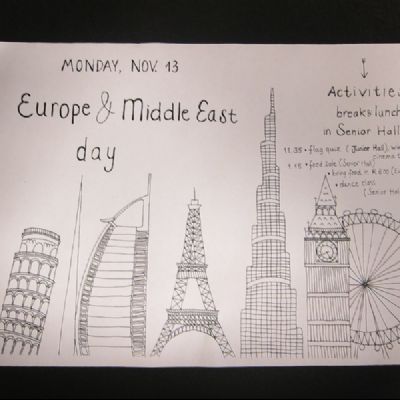 MONDAY, NOV. 13
Europe & Middle East
day
Activities
break & lunch
in Senior Hall
11:35 • flag quiz (Junior Hall),
• food sale (Senior Hall)
• bring food in
• dance class
(Senior Hall